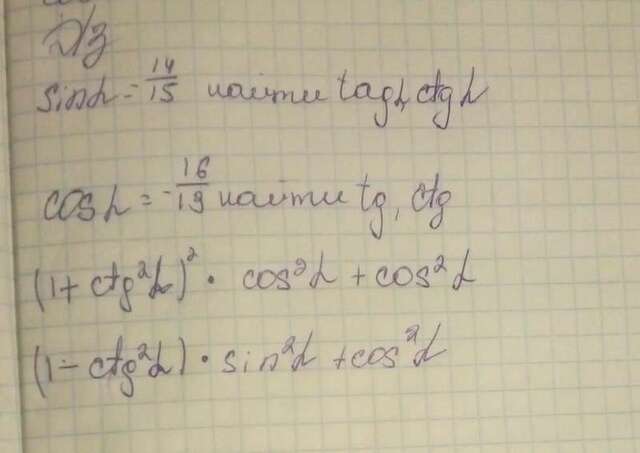 Д/З
sin α = 14/15 найти tagα, ctg α
cos α = -16/19 найти tg, ctg
(1 + ctg²α)² · cos²α + cos²α
(1 - ctg²α) · sin²α + cos²α